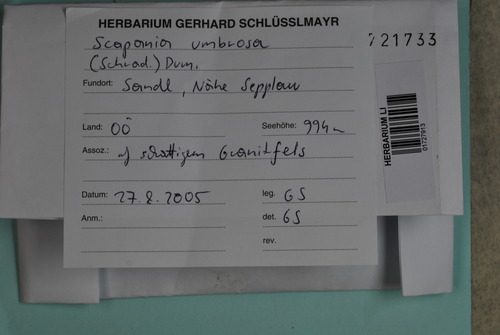 HERBARIUM GERHARD SCHLÜSSLMAYR
Scapania umbrosa
(Schrad.) Dum.
721733
Fundort: Sandl, Nähe Sepplau
Land: OÖ Seehöhe: 994m
Assoz.: auf schattigem Granitfels
Datum: 27.8.2005 leg. GS
Anm.: det. GS
rev.
HERBARIUM LI
01727913